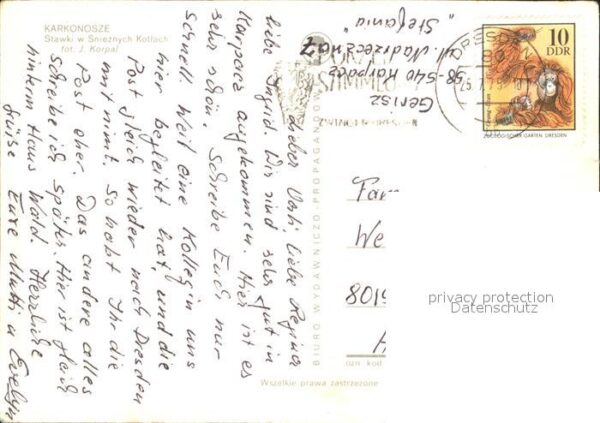 KARKONOSZE
Stawki w Śnieżnych Kotłach
fot. J. Korpal
Lieber Vati, liebe Regina
liebe Sigrid. Wir sind sehr gut in
Karpacz angekommen. Hier ist es
sehr schön. Schreibe Euch nur
schnell weil eine Kollegin uns
hier begleitet hat, und die
Post gleich wieder nach Dresden
mit nimmt. So habt Ihr die
Post eher. Das andere alles
schreibe ich später. Hier ist gleich
hinterm Haus Wald. Herzliche
Grüße Eure Mutti u Evelyn
Gerisz
58-540 Karpacz
ul. Nadrzeczna 7
"Stefania"
BIURO WYDAWNICZO-PROPAGANDOWE
Wszelkie prawa zastrzeżone
DRESDEN
10
DDR
ZOOLOGISCHER GARTEN DRESDEN
Fam
We
8019
kod
privacy protection
Datenschutz